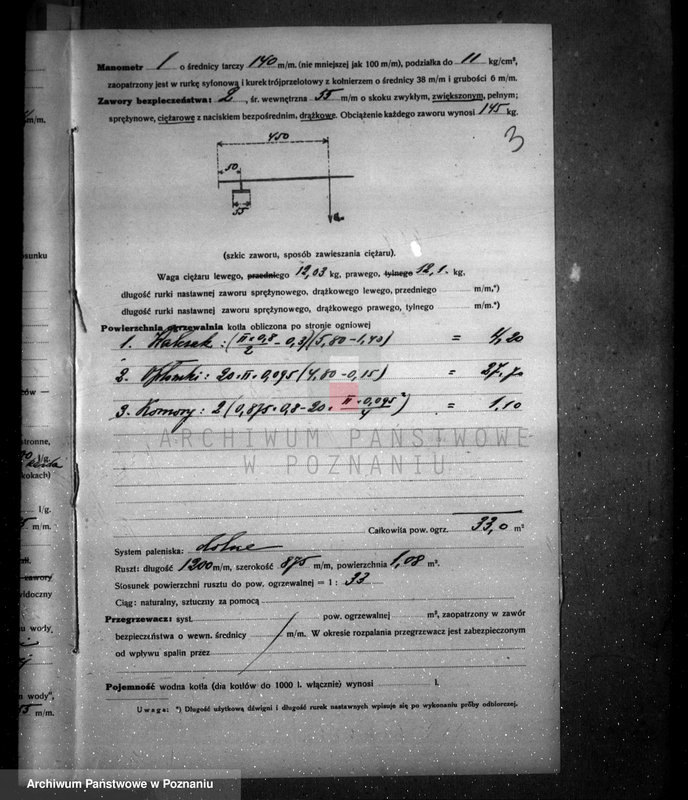 Manometr 1 o średnicy tarczy 140 m/m. (nie mniejszej jak 100 m/m), podziałka do 11 kg/cm²,
zaopatrzony jest w rurkę syfonową i kurek trójprzelotowy z kołnierzem o średnicy 38 m/m i grubości 6 m/m.
Zawory bezpieczeństwa: 2, śr. wewnętrzna 55 m/m o skoku zwykłym, zwiększonym, pełnym;
sprężynowe, ciężarowe z naciskiem bezpośrednim, drążkowe. Obciążenie każdego zaworu wynosi 145 kg.
3
450
50
55
(szkic zaworu, sposób zawieszania ciężaru).
Waga ciężaru lewego, przedniego 12,03 kg, prawego, tylnego 12,1 kg,
długość rurki nastawnej zaworu sprężynowego, drążkowego lewego, przedniego m/m,*)
długość rurki nastawnej zaworu sprężynowego, drążkowego prawego, tylnego m/m.*)
Powierzchnia ogrzewalna kotła obliczona po stronie ogniowej
1. Walczak : (π·0,8/2 − 0,3)(5,80 − 1,40) = 4,20
2. Opłomki : 20·π·0,095 (4,80 − 0,15) = 27,70
3. Komory : 2 (0,875·0,8 − 20·π·0,095²/4) = 1,10
ARCHIWUM PAŃSTWOWE
W POZNANIU
Całkowita pow. ogrz. 33,0 m²
System paleniska: dolne
Ruszt: długość 1200 m/m, szerokość 875 m/m, powierzchnia 1,08 m².
Stosunek powierzchni rusztu do pow. ogrzewalnej = 1 : 33
Ciąg: naturalny, sztuczny za pomocą
Przegrzewacz: syst. pow. ogrzewalnej m², zaopatrzony w zawór
bezpieczeństwa o wewn. średnicy m/m. W okresie rozpalania przegrzewacz jest zabezpieczonym
od wpływu spalin przez
Pojemność wodna kotła (dla kotłów do 1000 l. włącznie) wynosi l.
Uwaga: *) Długość użytkową dźwigni i długość rurek nastawnych wpisuje się po wykonaniu próby odbiorczej.
Archiwum Państwowe w Poznaniu